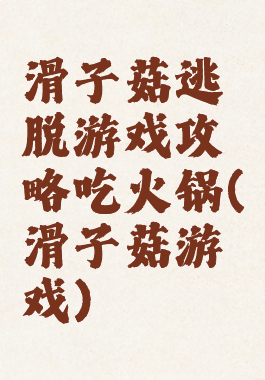 滑子菇逃
脱游戏攻
略吃火锅(
滑子菇游
戏)